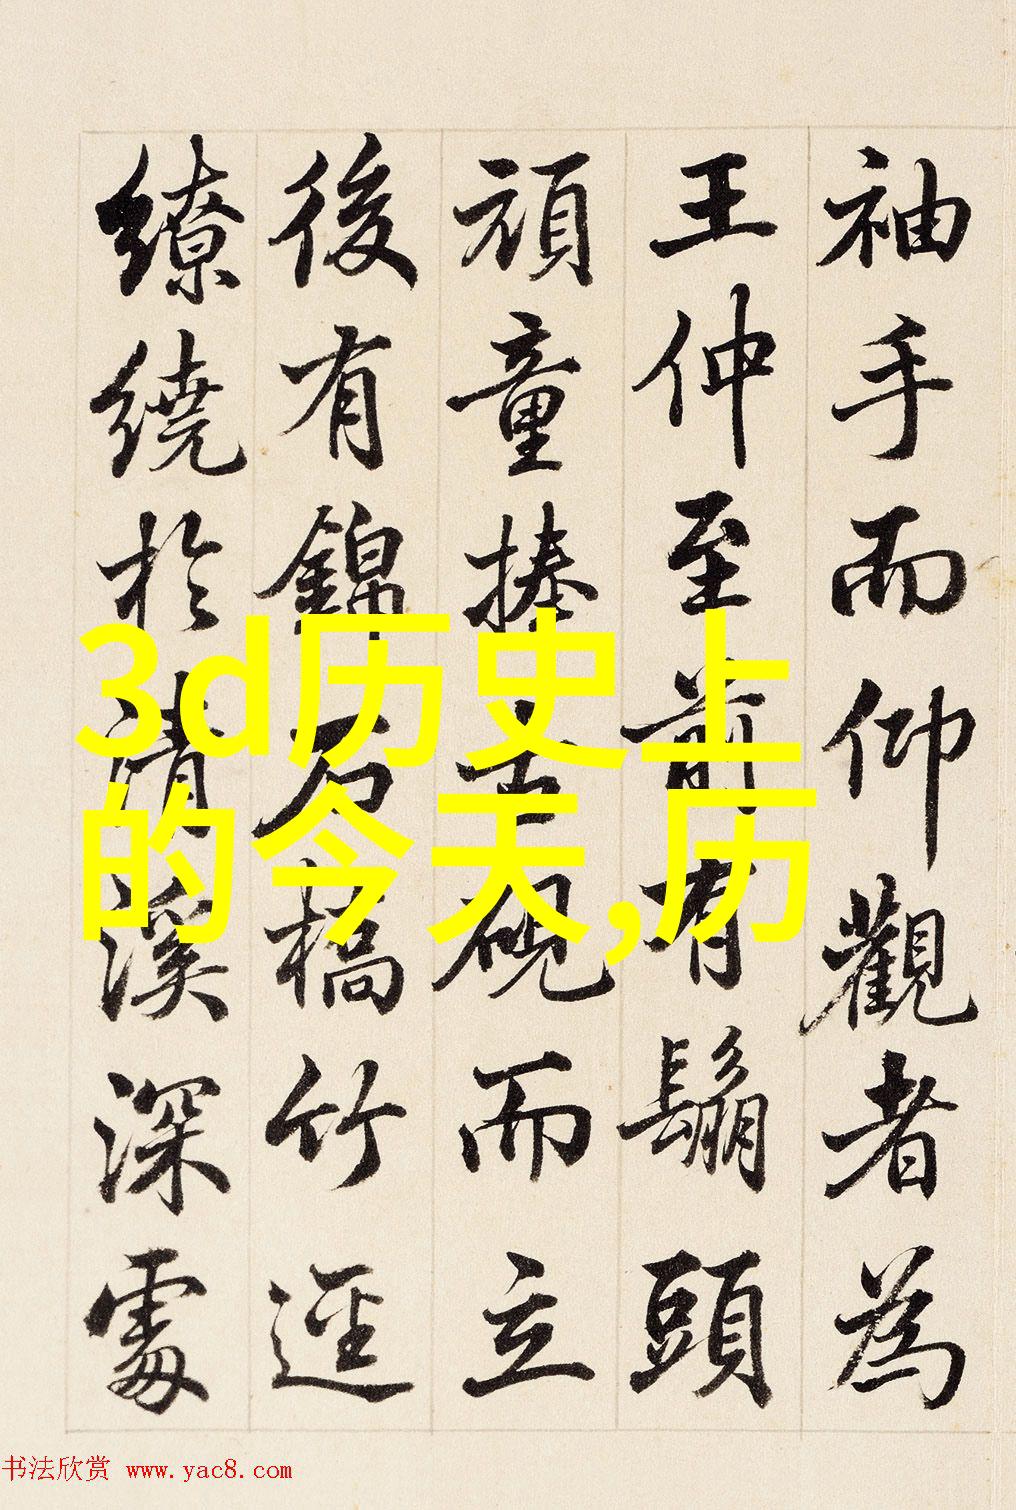 袖手而仰觀者為
王仲至前有鬅頭
頑童捧古硯而立
後有錦石橋竹逕
繚繞於清溪深處
3d历史上
的今天,历
书法欣赏 www.yac8.com